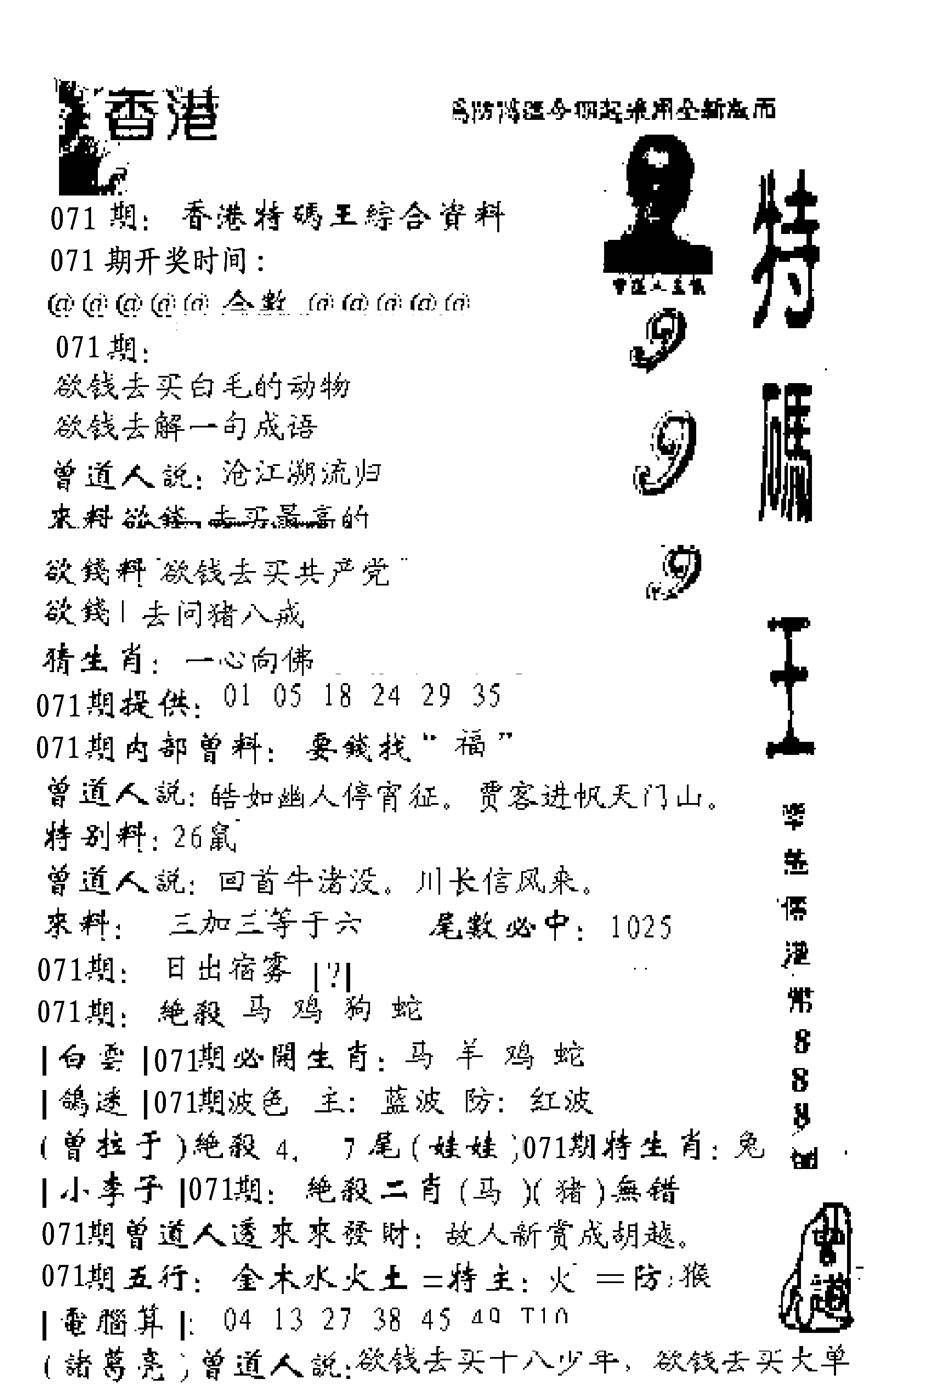 香港
071期：香港特碼王綜合資料
071期开奖时间：
@@@@@ 合數 @@@@@
071期：
欲钱去买白毛的动物
欲钱去解一句成语
曾道人説：沧江溯流归
來料欲錢：去买最高的
欲錢料“欲钱去买共产党”
欲錢|去问猪八戒
猜生肖：一心向佛
071期提供：01 05 18 24 29 35
071期内部曾料：要錢找“福”
曾道人説：皓如幽人停宵征。贾客进帆天门山。
特别料：26鼠
曾道人説：回首牛渚没。川长信风来。
來料：三加三等于六 尾數必中：1025
071期：日出宿雾 |?|
071期：絶殺 马 鸡 狗 蛇
|白雲|071期必開生肖：马 羊 鸡 蛇
|鴿迷|071期波色 主：蓝波 防：红波
(曾拉于)絶殺 4. 7尾(娃娃)071期特生肖：兔
|小李子|071期：絶殺二肖(马)(猪)無错
071期曾道人透來來發財：故人新赏成胡越。
071期五行：金木水火土=特主：火 =防：猴
|電腦算|：04 13 27 38 45 49 T10
(諸葛亮)曾道人説：欲钱去买十八少年，欲钱去买大单
曾道人
9
9
9
特
碼
王
888
曾道